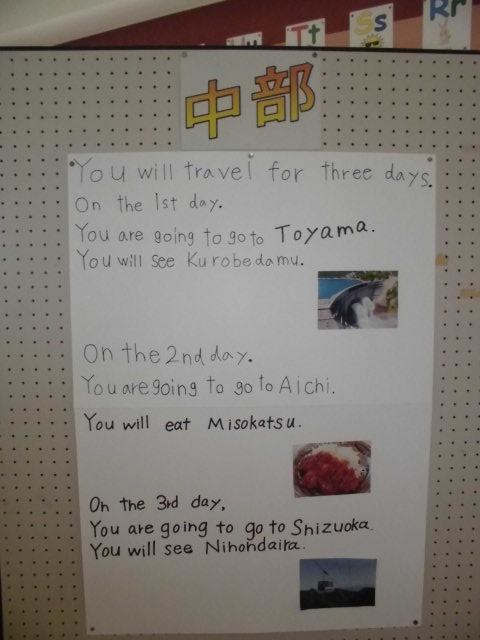 Tt
Ss
Rr
中部
You will travel for three days.
On the 1st day.
You are going to go to Toyama.
You will see Kurobedamu.
On the 2nd day.
You are going to go to Aichi.
You will eat Misokatsu.
On the 3rd day,
You are going to go to Shizuoka.
You will see Nihondaira.